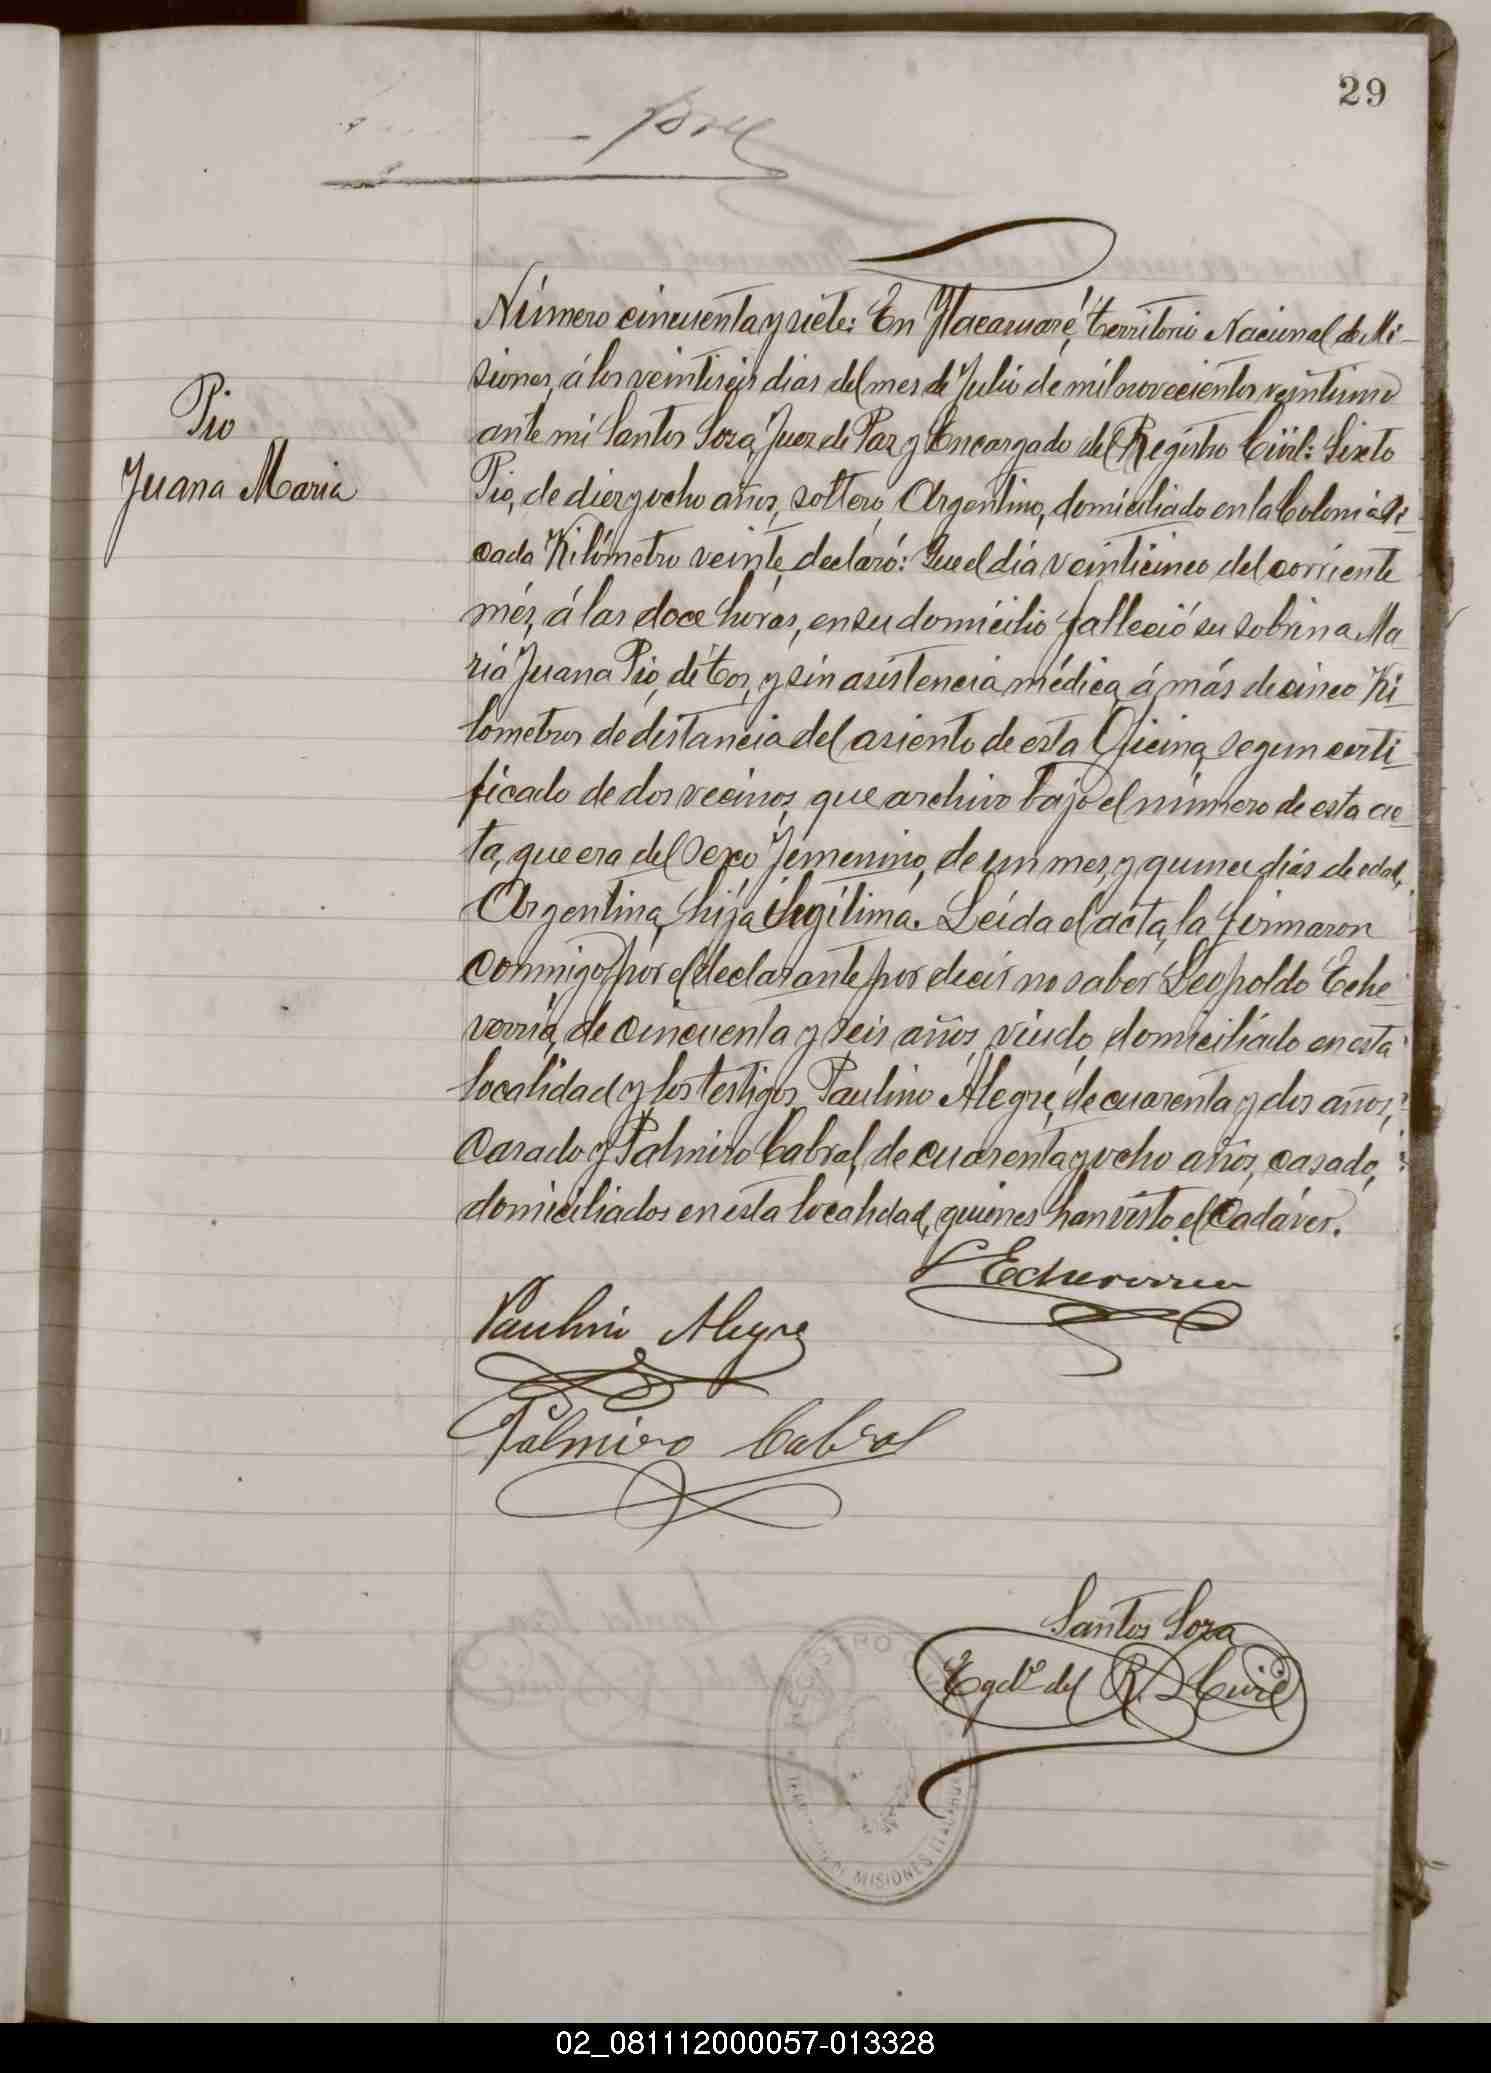 29
Pio
Juana Maria
Número cincuenta y siete: En Itacaruaré, territorio Nacional de Mi-
siones, á los veintiseis dias del mes de Julio de mil novecientos veintiuno
ante mi Santos Soza, Juez de Paz y Encargado del Registro Civil: Sixto
Pio, de diez y ocho años, soltero, Argentino, domiciliado en la Colonia Pi-
cada Kilómetro veinte, declaró: Que el dia veinticinco del corriente
més, á las doce horas, en su domicilio falleció su sobrina Ma-
ria Juana Pio, de tos, y sin asistencia médica, á más de cinco Ki-
lometros de distancia del asiento de esta Oficina, segun certi-
ficado de dos vecinos, que archivo bajo el número de esta ac-
ta, que era del sexo femenino, de un mes, y quince dias de edad,
Argentina, hija ilegítima. Leida el acta, la firmaron
conmigo, por el declarante por decir no saber Leopoldo Eche-
verria, de cincuenta y seis años, viudo, domiciliado en esta
localidad y los testigos Paulino Alegre, de cuarenta y dos años,
casado y Palmiro Cabral, de cuarenta y ocho años, casado,
domiciliados en esta localidad, quienes han visto el cadáver.
L Echeverria
Paulino Alegre
Palmiro Cabral
Santos Soza
Egdo del R. Civil
MISIONES
02_081112000057-013328